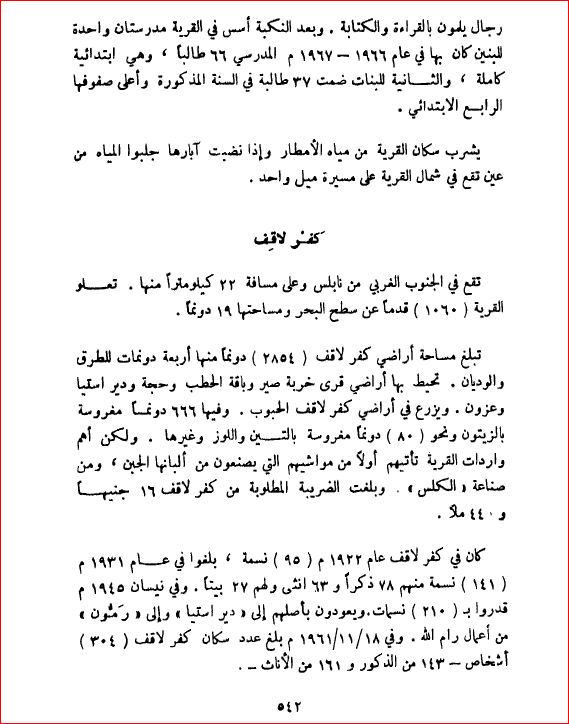 رجال يلمون بالقراءة والكتابة . وبعد النكبة أسس في القرية مدرستان واحدة
للبنين كان بها في عام ١٩٦٦ – ١٩٦٧ م المدرسي ٦٦ طالباً ، وهي ابتدائية
كاملة ، والثــانية للبنات ضمت ٣٧ طالبة في السنة المذكورة وأعلى صفوفها
الرابع الابتدائي .
يشرب سكان القرية من مياه الأمطار وإذا نضبت آبارها جلبوا المياه من
عين تقع في شمال القرية على مسيرة ميل واحد .
كفْر لاقِف
تقع في الجنوب الغربي من نابلس وعلى مسافة ٢٢ كيلومتراً منها . تعــلو
القرية ( ١٠٦٠ ) قدماً عن سطح البحر ومساحتها ١٩ دونماً .
تبلغ مساحة أراضي كفر لاقف ( ٢٨٥٤ ) دونماً منها أربعة دونمات للطرق
والوديان . تحيط بها أراضي قرى خربة صير وباقة الحطب وحجة ودير استيا
وعزون . ويزرع في أراضي كفر لاقف الحبوب . وفيها ٦٦٦ دونمــاً مغروسة
بالزيتون ونحو ( ٨٠ ) دونماً مغروسة بالتــين واللوز وغيرها . ولكن أهم
واردات القرية تأتيهم أولاً من مواشيهم التي يصنعون من ألبانها الجبن ، ومن
صناعة « الكلس » . وبلغت الضريبة المطلوبة من كفر لاقف ١٦ جنيهــاً
و ٤٤٠ ملاً .
كان في كفر لاقف عام ١٩٢٢ م ( ٩٥ ) نسمة ، بلغوا في عــام ١٩٣١ م
( ١٤١ ) نسمة منهم ٧٨ ذكراً و ٦٣ انثى ولهم ٢٧ بيتاً . وفي نيسان ١٩٤٥ م
قدروا بـ ( ٢١٠ ) نسمات.ويعودون بأصلهم إلى « دير استيا » وإلى « رَمُّون »
من أعمال رام الله . وفي ١٩٦١/١١/١٨ م بلغ عدد سكان كفر لاقف ( ٣٠٤ )
أشخاص – ١٤٣ من الذكور و ١٦١ من الأناث – .
٥٤٢